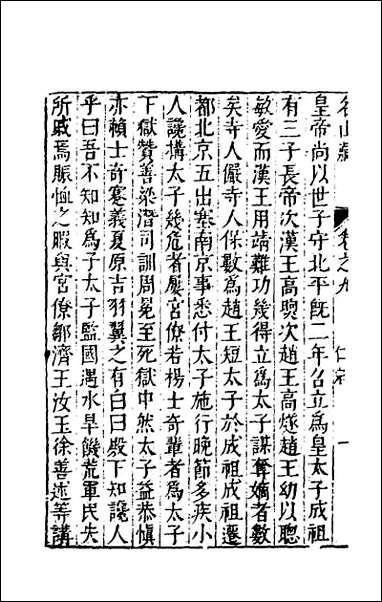 名山藏 卷之九 仁宗 一
皇帝尚以世子守北平旣二年召立爲皇太子成祖
有三子長帝次漢王高喣次趙王高燧趙王幼以聰
敏愛而漢王用靖難功幾得立爲太子謀奪嫡者數
矣寺人儼寺人保數爲趙王短太子於成祖成祖遷
都北京五出塞南京事悉付太子施行晚節多疾小
人讒構太子幾危者屢宮僚若楊士奇輩者爲太子
下獄贊善梁潛司訓周冕至死獄中然太子益恭愼
亦賴士奇蹇義夏原吉羽翼之有白曰殿下知讒人
乎曰吾不知知爲子太子監國遇水旱饑荒軍民失
所戚焉賑恤之暇與宮僚鄒濟王汝玉徐善述等講